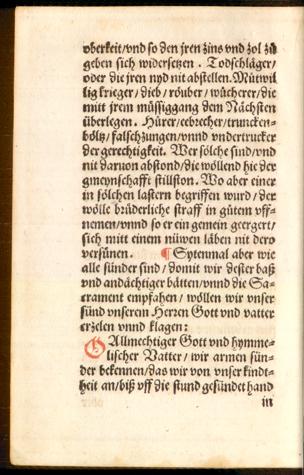 oberkeit/vnd so den jren zins vnd zol zů
geben sich widersetzen . Todschläger/
oder die jren nyd nit abstellen. Můtwil
lig krieger/ dieb/ röuber/ wůcherer/ die
mitt jrem müssiggang dem Nächsten
überlegen. Hůrer/ eebrecher/ truncken-
böltz/ falschzungen/ vnnd vndertrucker
der gerechtigkeit. Wer sölche sind/ vnd
nit daruon abstond/ die wöllend hie der
gmeynschafft stillston. Wo aber einer
in sölchen lastern begriffen wurd/ der
wölle brüderliche straff in gůtem vff-
nemen/ vnnd so er ein gemein geergert/
sich mitt einem nüwen läben nit dero
versünen. ¶ Sytenmal aber wie
alle sünder sind/ domit wir dester baß
vnd andächtiger bätten/ vnnd die Sa-
crament empfahen/ wöllen wir vnser
sünd vnserem Herren Gott vnd vatter
erzelen vnnd klagen:
O Allmechtiger Gott vnd hymme-
lischer Vatter/ wir armen sün-
der bekennen/ das wir von vnser kindt-
heit an/ biß vff die stund gesündet hand
in